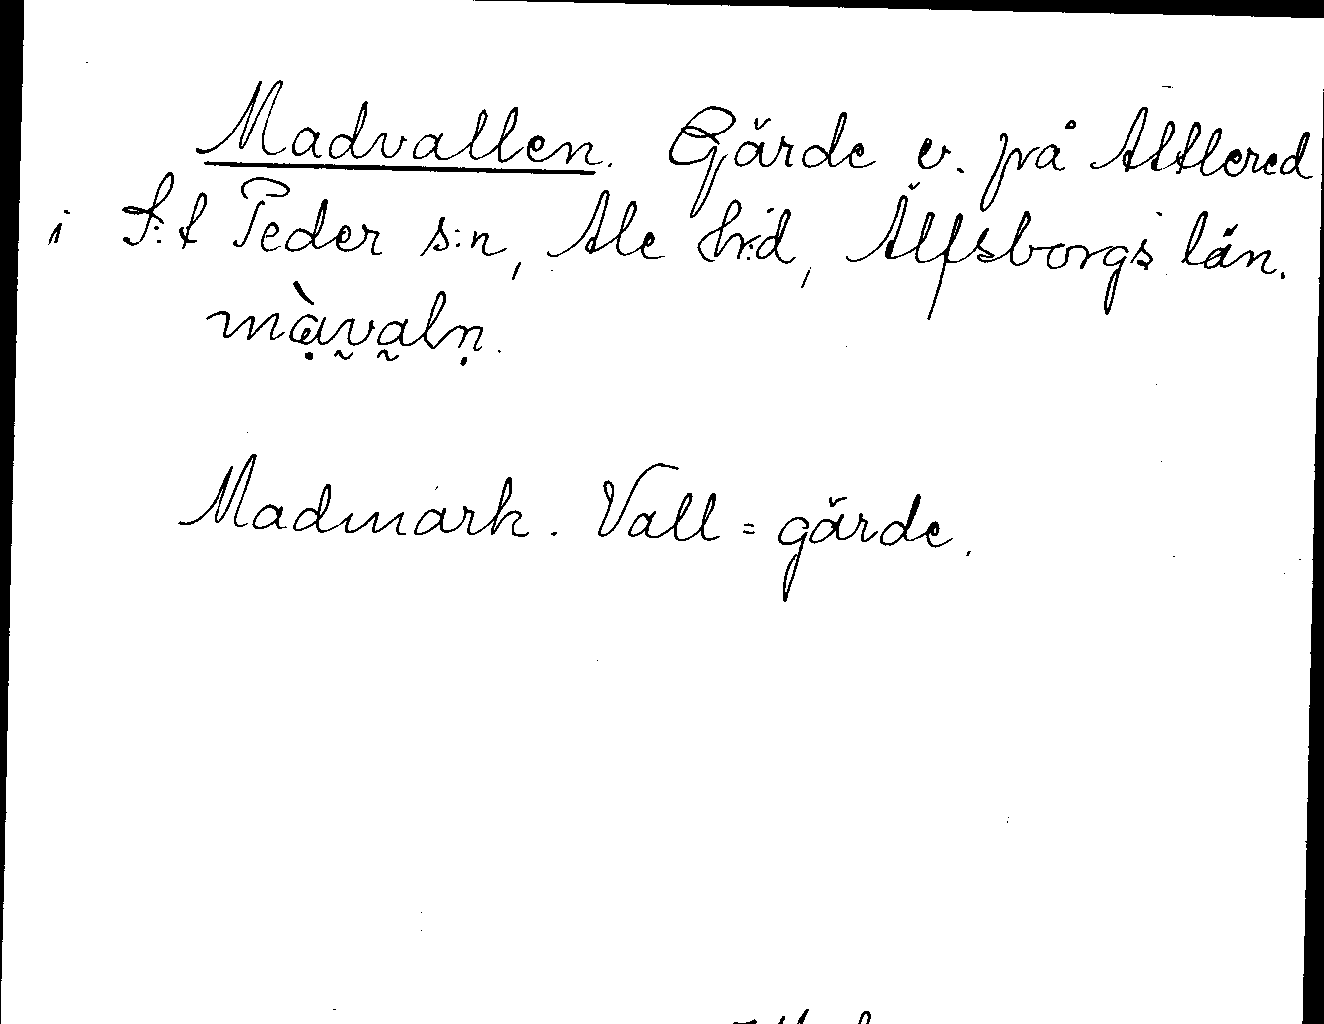 Madvallen. Gärde v. på Alflered
i S:t Peder s:n, Ale h:d, Älfsborgs län.
mạ̀v̰a̰lṇ.
Madmark. Vall = gärde.